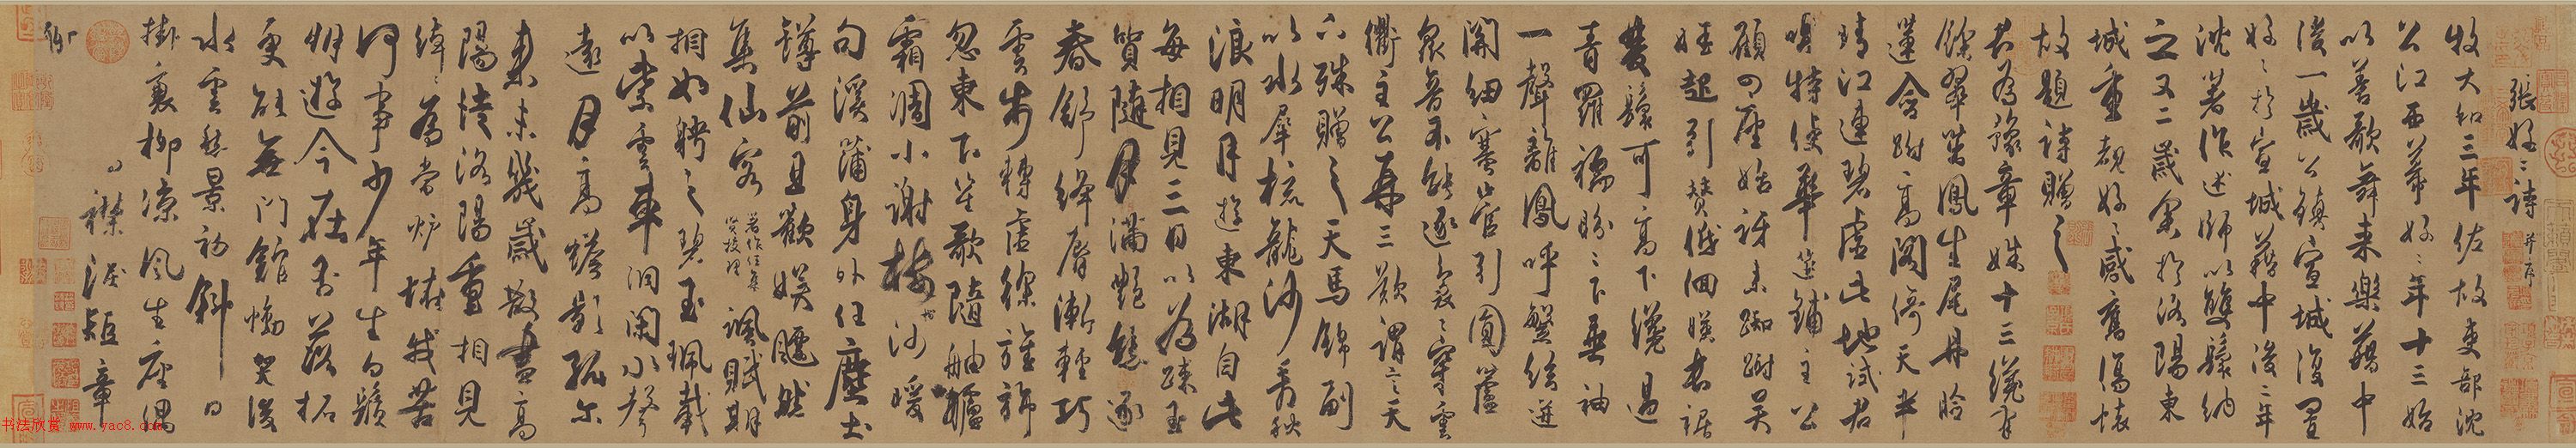 張好好詩 并序
牧大和三年佐故吏部沈
公江西幕好好年十三始
以善歌舞來樂籍中
後一歲公鎮宣城復置
好好於宣城籍中後二年
沈著作述師以雙鬟納
之又二歲余於洛陽東
城重覩好好感舊傷懷
故題詩贈之
君為豫章姝十三纔有
餘翠茁鳳生尾丹臉
蓮含跗高閣倚天半
晴江連碧虛此地試君
唱特使華筵鋪主公
顧四座始訝來踟躕吳
娃起引贊低佪暎長裾
雙鬟可高下纔過
青羅襦盼盼下垂袖
一聲離鳳呼繁弦迸
關紐塞管引圓蘆
衆音不能逐裊裊穿雲
衢主公再三歎謂言天
下殊贈之天馬錦副
以水犀梳龍沙看秋
浪明月遊東湖自此
每相見三日以為踈玉
質隨月滿艷態逐
春舒絳脣漸輕巧
雲步轉虛徐旌旆
忽東下笙歌隨舳艫
霜凋小謝樹沙暖
句溪蒲身外任塵土
罇前且歡娛飄然
集仙客 著作任集賢校理 諷賦期
相如聘之碧玉珮載
以紫雲車洞閉水聲
遠月高蟾影孤爾
來未幾歲散盡高
陽徒洛陽重相見
綽綽為當壚怪我苦
何事少年生白鬚
朋遊今在否落拓
更能無門館慟哭後
水雲愁景初斜日
掛衰柳涼風生座隅
襟淚短章
聊
书法欣赏 www.yac8.com